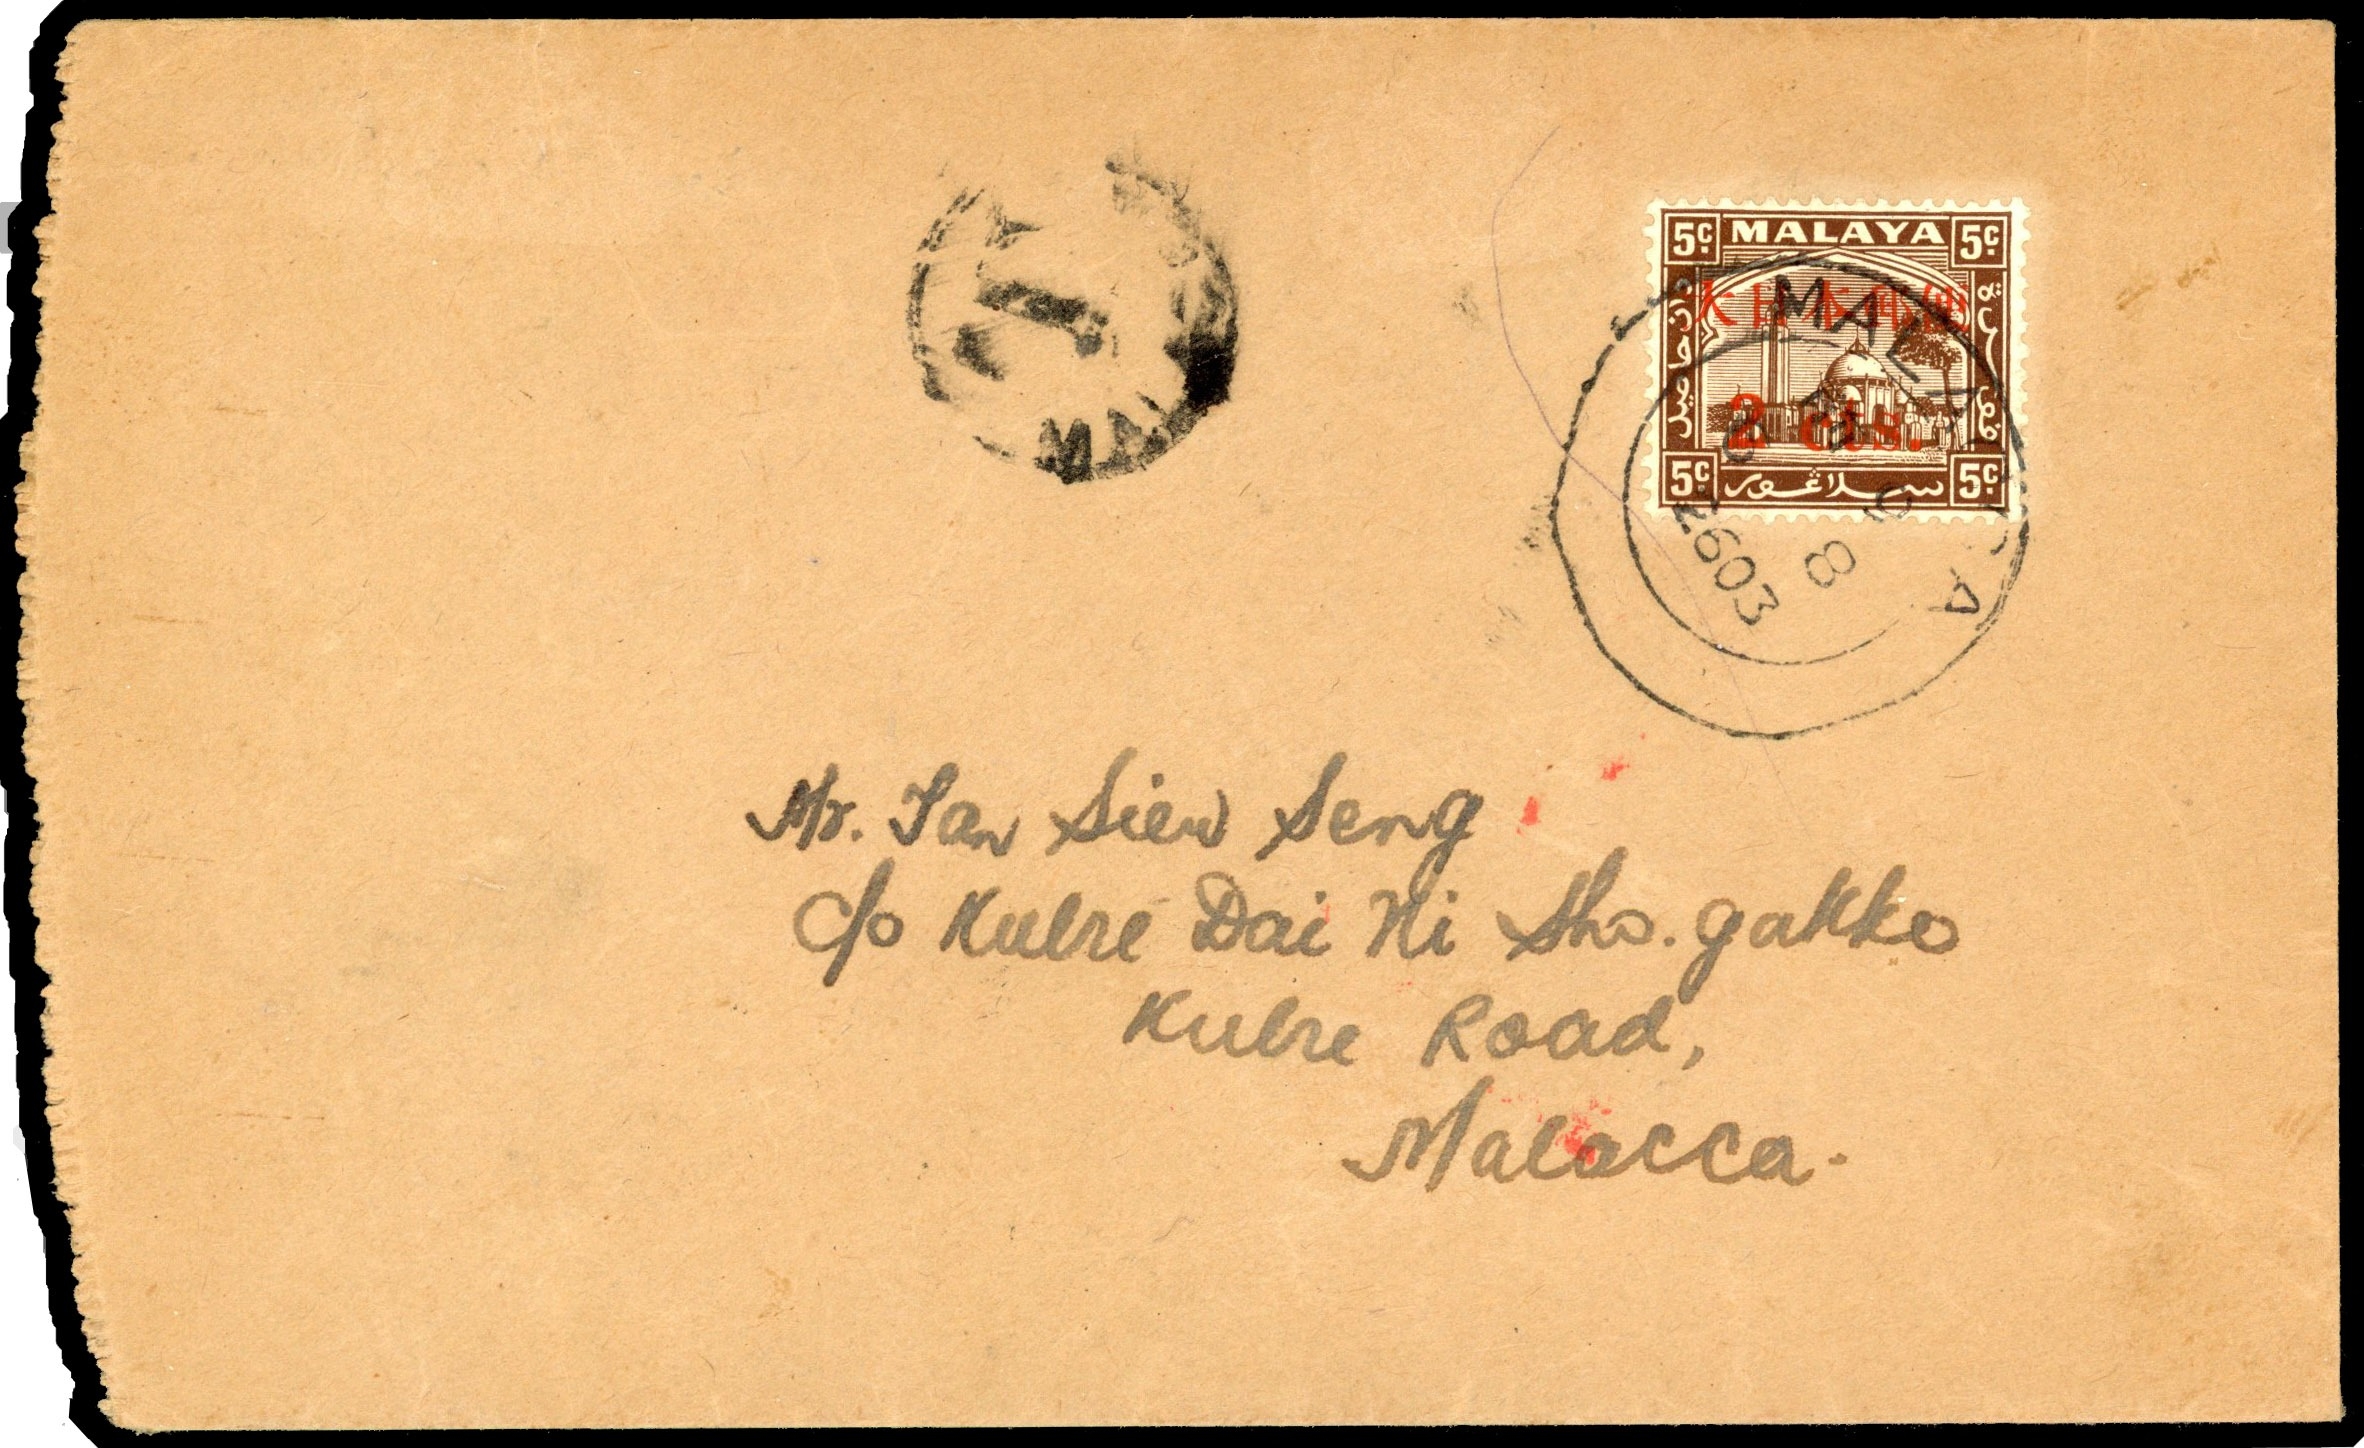 5c. MALAYA 5c.
大日本郵便
2 cts.
5c. سلاڠور 5c.
MALACCA
8
2603
Mr. Tan Siew Seng
c/o Kubre Dai Ni Sho. gakko
Kubre Road,
Malacca.